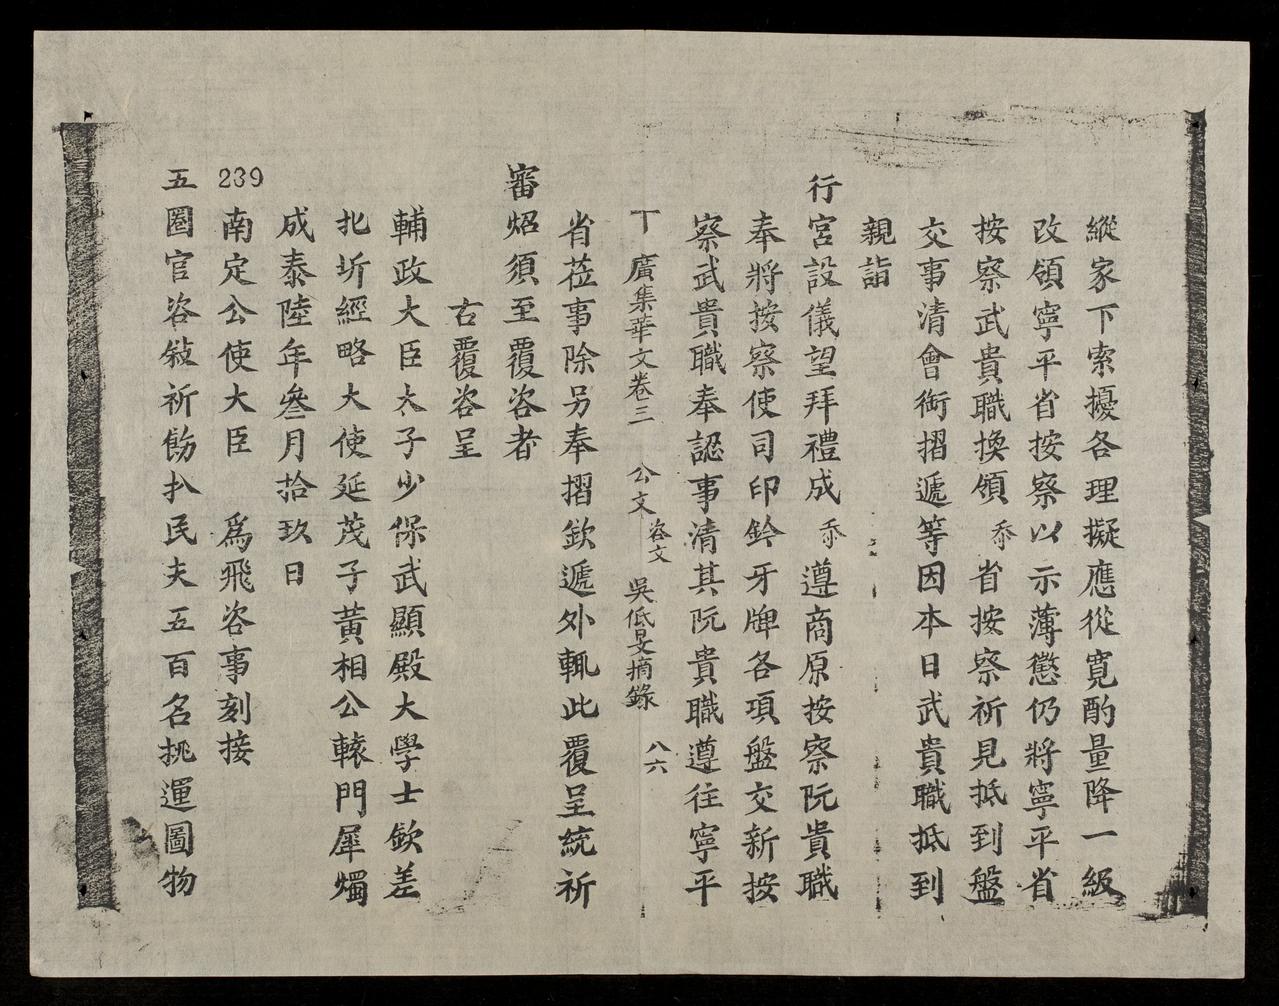 縱家下索擾各理擬應從寬酌量降一級
改領寧平省按察以示薄懲仍將寧平省
按察武貴職換領忝省按察祈見抵到盤
交事清會銜摺遞等因本日武貴職抵到
親詣
行宮設儀望拜禮成忝遵商原按察阮貴職
奉將按察使司印鈐牙牌各項盤交新按
察武貴職奉認事清其阮貴職遵往寧平
丁 廣集華文卷三 公文 咨文 吳低旻摘錄 八六
省莅事除另奉摺欽遞外輒此覆呈統祈
審炤須至覆咨者
右覆咨呈
輔政大臣太子少保武顯殿大學士欽差
北圻經略大使延茂子黃相公轅門犀燭
成泰陸年叄月拾玖日
239 南定公使大臣 爲飛咨事刻接
五圈官咨敍祈飭扒民夫五百名挑運圖物